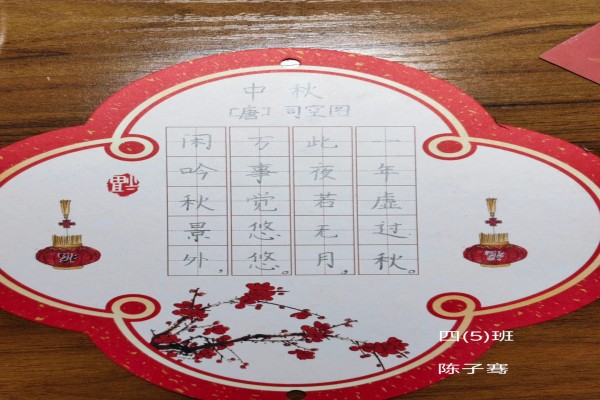 中秋
[唐] 司空图
闲吟秋景外，
万事觉悠悠。
此夜若无月，
一年虚过秋。
福
四(5)班
陈子骞